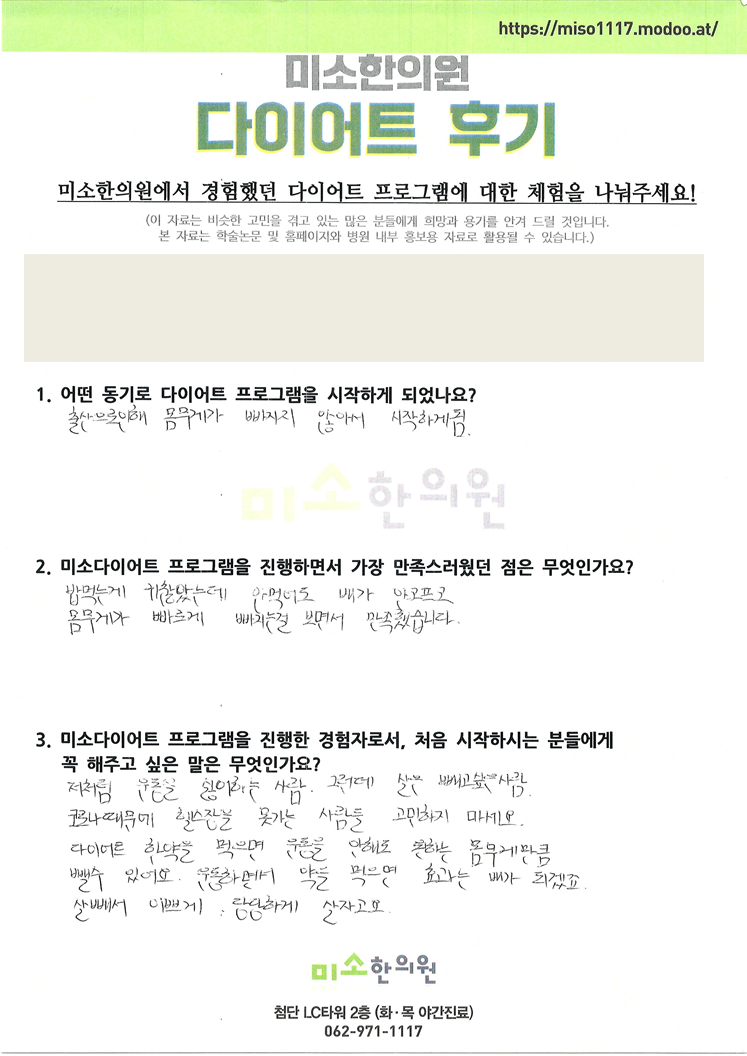 https://miso1117.modoo.at/
미소한의원
다이어트 후기
미소한의원에서 경험했던 다이어트 프로그램에 대한 체험을 나눠주세요!
(이 자료는 비슷한 고민을 겪고 있는 많은 분들에게 희망과 용기를 안겨 드릴 것입니다.
본 자료는 학술논문 및 홈페이지와 병원 내부 홍보용 자료로 활용될 수 있습니다.)
1. 어떤 동기로 다이어트 프로그램을 시작하게 되었나요?
출산으로인해 몸무게가 빠지지 않아서 시작하게됨.
미소한의원
2. 미소다이어트 프로그램을 진행하면서 가장 만족스러웠던 점은 무엇인가요?
밥먹는게 귀찮았는데 안먹어도 배가 안고프고
몸무게가 빠르게 빠지는걸 보면서 만족했습니다.
3. 미소다이어트 프로그램을 진행한 경험자로서, 처음 시작하시는 분들에게
꼭 해주고 싶은 말은 무엇인가요?
저처럼 운동을 싫어하는 사람. 그런데 살은 빼고싶은사람.
코로나때무에 헬스장을 못가는 사람들 고민하지 마세요.
다이어트 한약을 먹으면 운동을 안해도 원하는 몸무게만큼
뺄수 있어요. 운동하면서 약을 먹으면 효과는 배가 되겠죠.
살빼서 이쁘게 당당하게 살자고요.
미소한의원
첨단 LC타워 2층 (화·목 야간진료)
062-971-1117